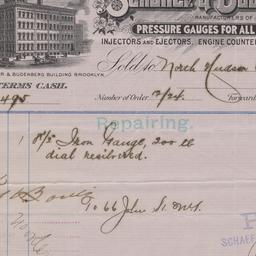 MANUFACTURERS OF
PRESSURE GAUGES FOR ALL
INJECTORS AND EJECTORS, ENGINE COUNTER
& BUDENBERG BUILDING BROOKLYN.
Sold to North Hudson
TERMS CASH.
495
Number of Order 12/24. Forwarde
Repairing.
1 8½ Iron Gauge, 200 lb
dial resilvered.
To 66 John St. N.Y.
SCHAEF